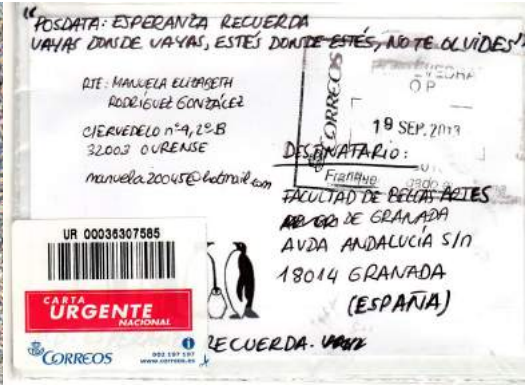 "POSDATA: ESPERANZA RECUERDA
VAYAS DONDE VAYAS, ESTÉS DONDE ESTÉS, NO TE OLVIDES"
RTE: MANUELA ELIZABETH
RODRÍGUEZ GONZÁLEZ
CIERVEDELO nº9, 2º B
32003 OURENSE
manuela20045@hotmail.com
CORREOS
O P
19 SEP. 2013
Franqueo
DESTINATARIO:
FACULTAD DE BELLAS ARTES
DE GRANADA
AVDA ANDALUCÍA S/n
18014 GRANADA
(ESPAÑA)
UR 00036307585
CARTA
URGENTE
NACIONAL
CORREOS
902 197 197
www.correos.es
RECUERDA.